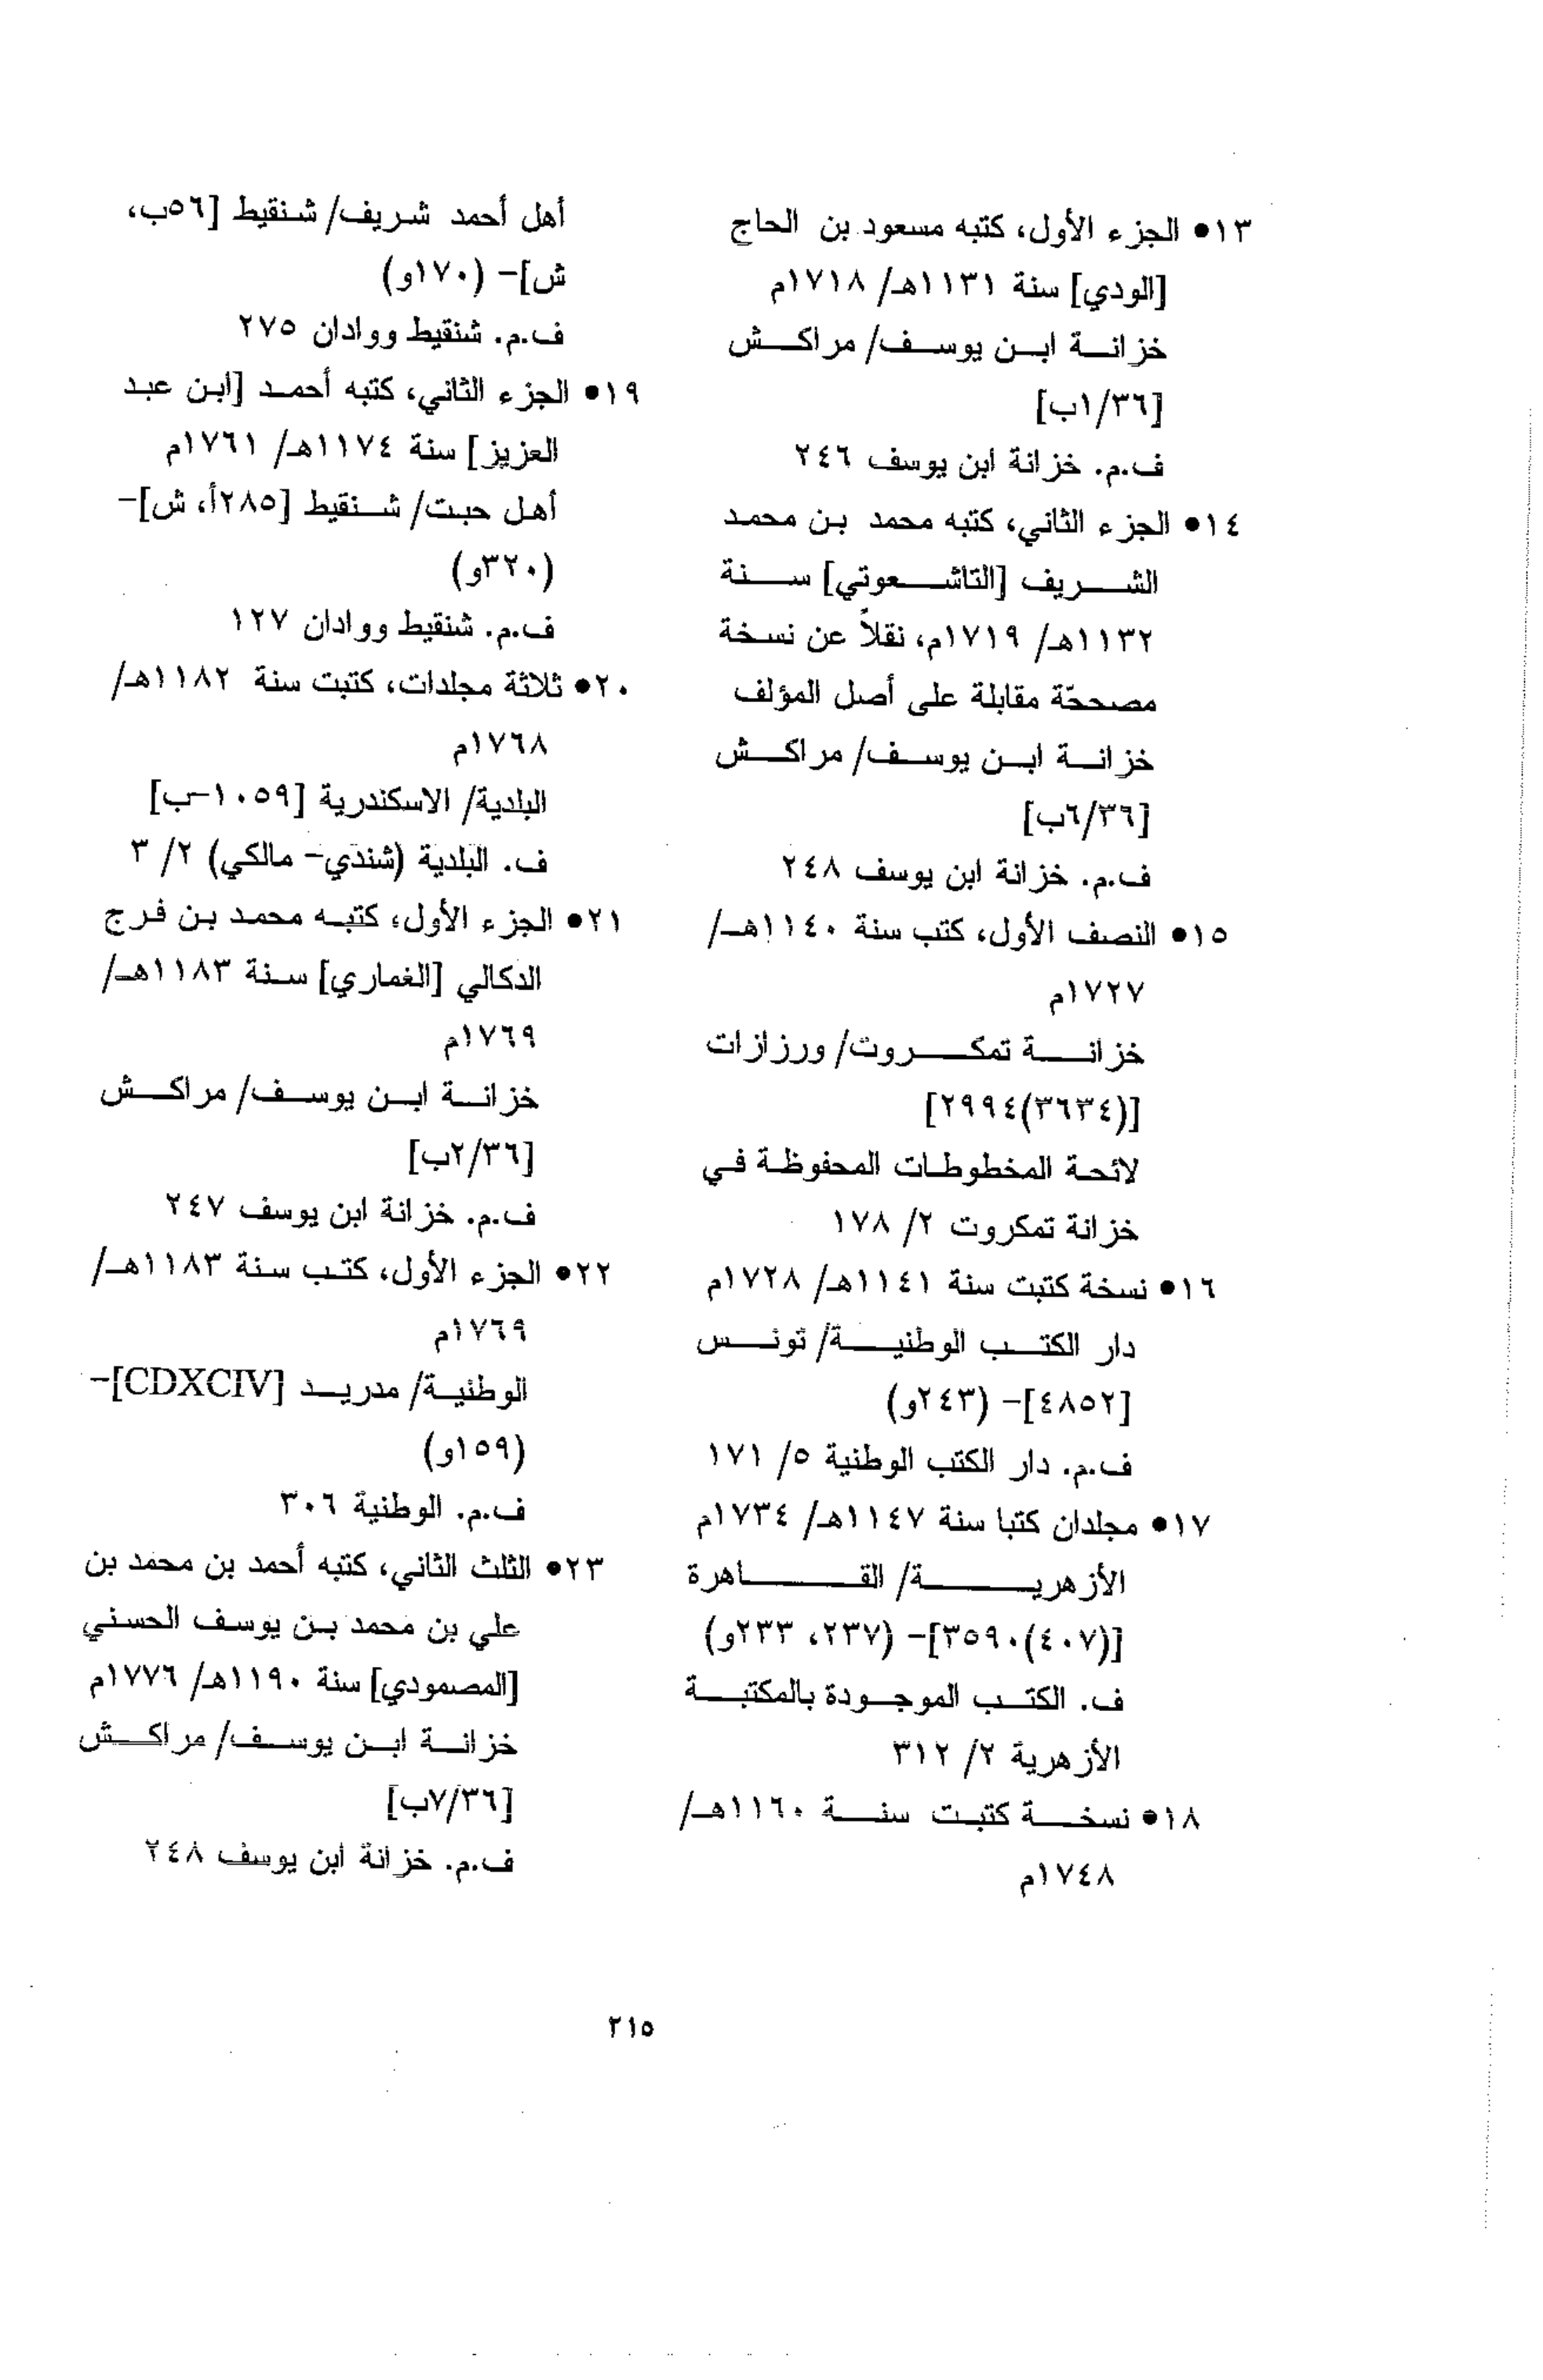 ١٣● الجزء الأول، كتبه مسعود بن الحاج
[الودي] سنة ١١٣١هـ/ ١٧١٨م
خزانة ابن يوسف/ مراكش
[١/٣٦ب]
ف.م. خزانة ابن يوسف ٢٤٦
١٤● الجزء الثاني، كتبه محمد بن محمد
الشريف [التاشعوتي] سنة
١١٣٢هـ/ ١٧١٩م، نقلاً عن نسخة
مصححّة مقابلة على أصل المؤلف
خزانة ابن يوسف/ مراكش
[٦/٣٦ب]
ف.م. خزانة ابن يوسف ٢٤٨
١٥● النصف الأول، كتب سنة ١١٤٠هـ/
١٧٢٧م
خزانة تمكروت/ ورزازات
[(٣٦٣٤)٢٩٩٤]
لائحة المخطوطات المحفوظة في
خزانة تمكروت ٢/ ١٧٨
١٦● نسخة كتبت سنة ١١٤١هـ/ ١٧٢٨م
دار الكتب الوطنية/ تونس
[٤٨٥٢]- (٢٤٣و)
ف.م. دار الكتب الوطنية ٥/ ١٧١
١٧● مجلدان كتبا سنة ١١٤٧هـ/ ١٧٣٤م
الأزهرية/ القاهرة
[(٤٠٧)٣٥٩٠]- (٢٣٧، ٢٣٣و)
ف. الكتب الموجودة بالمكتبة
الأزهرية ٢/ ٣١٢
١٨● نسخة كتبت سنة ١١٦٠هـ/
١٧٤٨م
أهل أحمد شريف/ شنقيط [٥٦ب،
ش]- (١٧٠و)
ف.م. شنقيط ووادان ٢٧٥
١٩● الجزء الثاني، كتبه أحمد [ابن عبد
العزيز] سنة ١١٧٤هـ/ ١٧٦١م
أهل حبت/ شنقيط [٢٨٥أ، ش]-
(٣٢٠و)
ف.م. شنقيط ووادان ١٢٧
٢٠● ثلاثة مجلدات، كتبت سنة ١١٨٢هـ/
١٧٦٨م
البلدية/ الاسكندرية [١٠٥٩-ب]
ف. البلدية (شندي- مالكي) ٢/ ٣
٢١● الجزء الأول، كتبه محمد بن فرج
الدكالي [الغماري] سنة ١١٨٣هـ/
١٧٦٩م
خزانة ابن يوسف/ مراكش
[٢/٣٦ب]
ف.م. خزانة ابن يوسف ٢٤٧
٢٢● الجزء الأول، كتب سنة ١١٨٣هـ/
١٧٦٩م
الوطنية/ مدريد [CDXCIV]-
(١٥٩و)
ف.م. الوطنية ٣٠٦
٢٣● الثلث الثاني، كتبه أحمد بن محمد بن
علي بن محمد بن يوسف الحسني
[المصمودي] سنة ١١٩٠هـ/ ١٧٧٦م
خزانة ابن يوسف/ مراكش
[٧/٣٦ب]
ف.م. خزانة ابن يوسف ٢٤٨
٢١٥